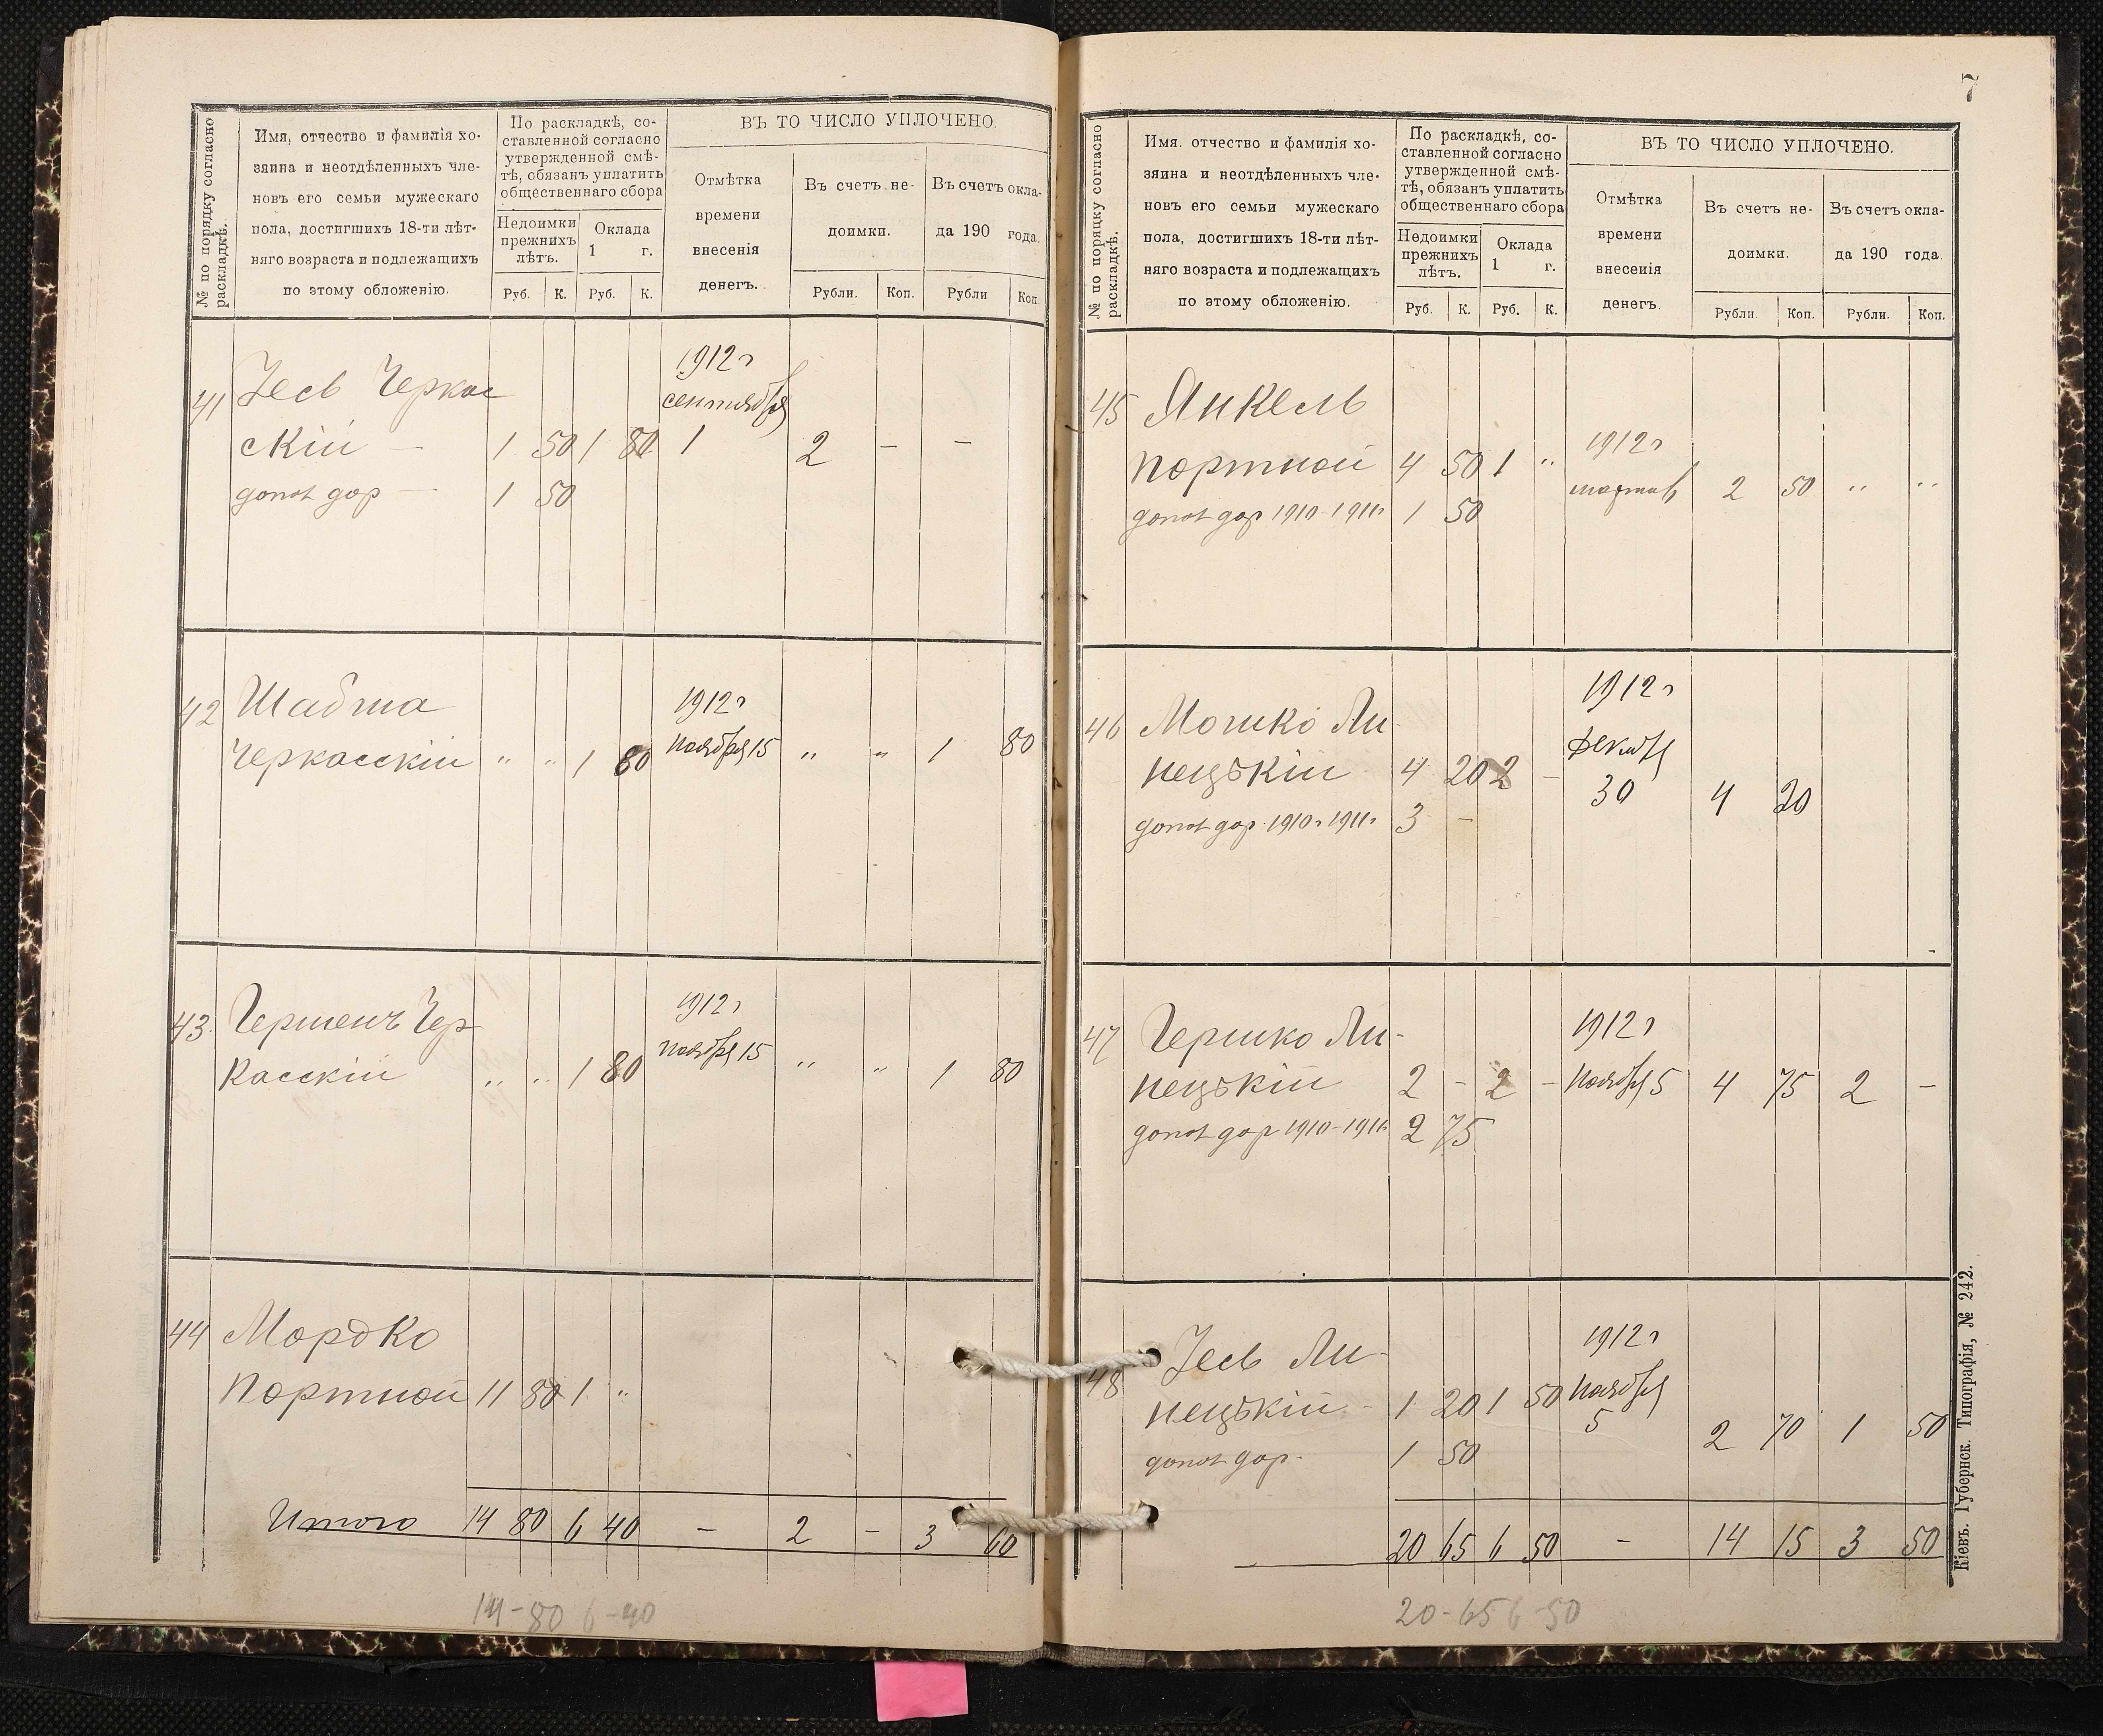 № по порядку согласно раскладкѣ.
Имя, отчество и фамилія хо-
зяина и неотдѣленныхъ чле-
новъ его семьи мужескаго
пола, достигшихъ 18-ти лѣт-
няго возраста и подлежащихъ
по этому обложенію.
По раскладкѣ, со-
ставленной согласно
утвержденной смѣ-
тѣ, обязанъ уплатить
общественнаго сбора
Недоимки
прежнихъ
лѣтъ.
Оклада
1 г.
Руб. К. Руб. К.
ВЪ ТО ЧИСЛО УПЛОЧЕНО.
Отмѣтка
времени
внесенія
денегъ.
Въ счетъ не-
доимки.
Въ счетъ окла-
да 190 года.
Рубли. Коп. Рубли Коп.
1912 г
41 Іесь Черкас
сентября
скій — 1 50 1 80 1 2 — —
допол дор — 1 50
42 Шабша 1912 г
Черкасскій " " 1 80 ноября 15 " " 1 80
43. Гершенъ Чер 1912 г
касскій " " 1 80 ноября 15 " " 1 80
44 Мордко
Портной 11 80 1 "
Итого 14 80 6 40 — 2 — 3 60
14-80 6-40
7
№ по порядку согласно раскладкѣ.
Имя. отчество и фамилія хо-
зяина и неотдѣленныхъ чле-
новъ его семьи мужескаго
пола, достигшихъ 18-ти лѣт-
няго возраста и подлежащихъ
по этому обложенію.
По раскладкѣ, со-
ставленной согласно
утвержденной смѣ-
тѣ, обязанъ уплатить
общественнаго сбора
Недоимки
прежнихъ
лѣтъ.
Оклада
1 г.
Руб. К. Руб. К.
ВЪ ТО ЧИСЛО УПЛОЧЕНО.
Отмѣтка
времени
внесенія
денегъ.
Въ счетъ не-
доимки.
Въ счетъ окла-
да 190 года.
Рубли. Коп. Рубли. Коп.
45 Янкель
1912 г
Портной 4 50 1 " 2 50 " "
допол дор 1910 1911г 1 50
1912 г
46 Мошко Ли-
декабря
нецькій 4 20 2 — 30 4 20
допол дор. 1910 г 1911 г 3 —
47 Гершко Ли- 1912 г
нецькій 2 - 2 — ноября 5 4 75 2 —
допол дор 1910-1911г 2 75
1912 г
48 Іесь Ли-
нецькій 1 20 1 50 ноября 5 2 70 1 50
допол дор. 1 50
20 65 6 50 — 14 15 3 50
20-65 6-50
Кіевъ. Губернск. Типографія, № 242.